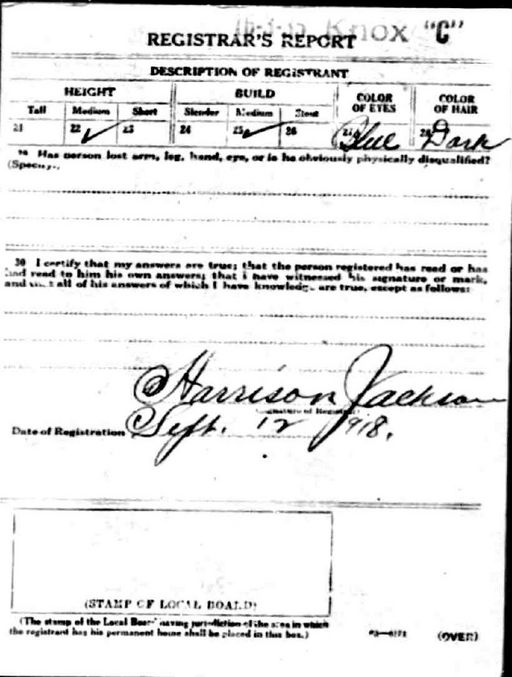 Knox "C"
REGISTRAR'S REPORT
DESCRIPTION OF REGISTRANT
HEIGHT BUILD COLOR OF EYES COLOR OF HAIR
Tall Medium Short Slender Medium Stout
21 22 ✓ 23 24 25 ✓ 26 27 Blue 28 Dark
29 Has person lost arm, leg, hand, eye, or is he obviously physically disqualified?
(Specify).
30 I certify that my answers are true; that the person registered has read or has
had read to him his own answers; that I have witnessed his signature or mark,
and that all of his answers of which I have knowledge are true, except as follows:
Harrison Jackson
(Signature of Registrar)
Date of Registration Sept. 12 1918.
(STAMP OF LOCAL BOARD)
(The stamp of the Local Board having jurisdiction of the area in which
the registrant has his permanent home shall be placed in this box.)
(OVER)